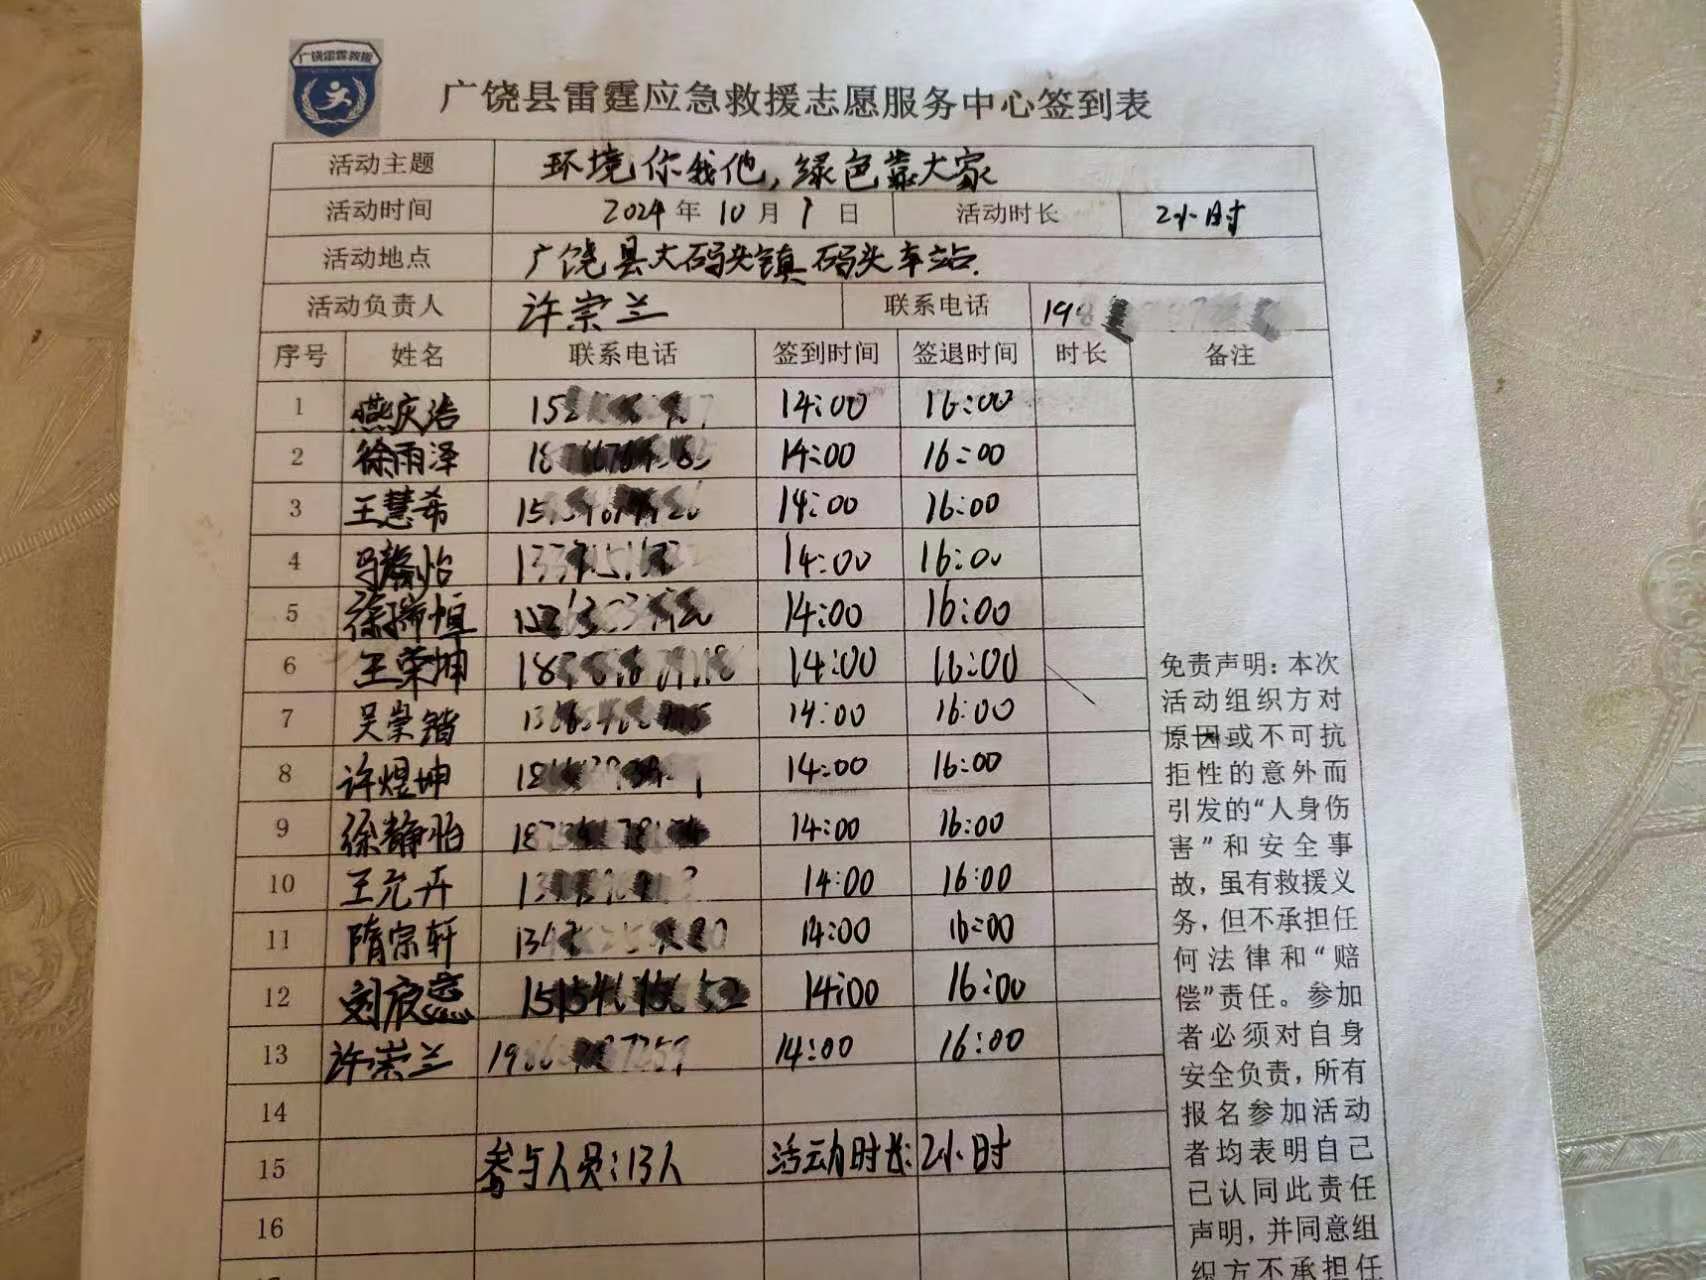 广饶雷霆救援
广饶县雷霆应急救援志愿服务中心签到表
活动主题 环境你我他,绿色靠大家
活动时间 2024年10月1日 活动时长 2小时
活动地点 广饶县大码头镇码头车站.
活动负责人 许崇兰 联系电话 19
序号 姓名 联系电话 签到时间 签退时间 时长 备注
1 燕庆浩 14:00 16:00
2 徐雨泽 14:00 16:00
3 王慧希 14:00 16:00
4 马馨怡 14:00 16:00
5 14:00 16:00
6 王荣坤 14:00 16:00
7 吴崇锴 14:00 16:00
8 许煜坤 14:00 16:00
9 徐静怡 14:00 16:00
10 王允卉 14:00 16:00
11 隋宗轩 14:00 16:00
12 14:00 16:00
13 许崇兰 14:00 16:00
14
15 参与人员:13人 活动时长:2小时
16
免责声明:本次
活动组织方对
原因或不可抗
拒性的意外而
引发的“人身伤
害”和安全事
故,虽有救援义
务,但不承担任
何法律和“赔
偿”责任。参加
者必须对自身
安全负责,所有
报名参加活动
者均表明自己
已认同此责任
声明,并同意组
织方不承担任